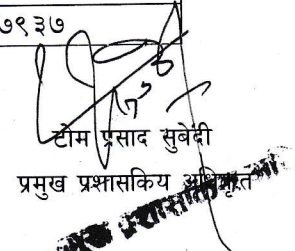 ७९३७
टोम प्रसाद सुबेदी
प्रमुख प्रशासकिय अधिकृत